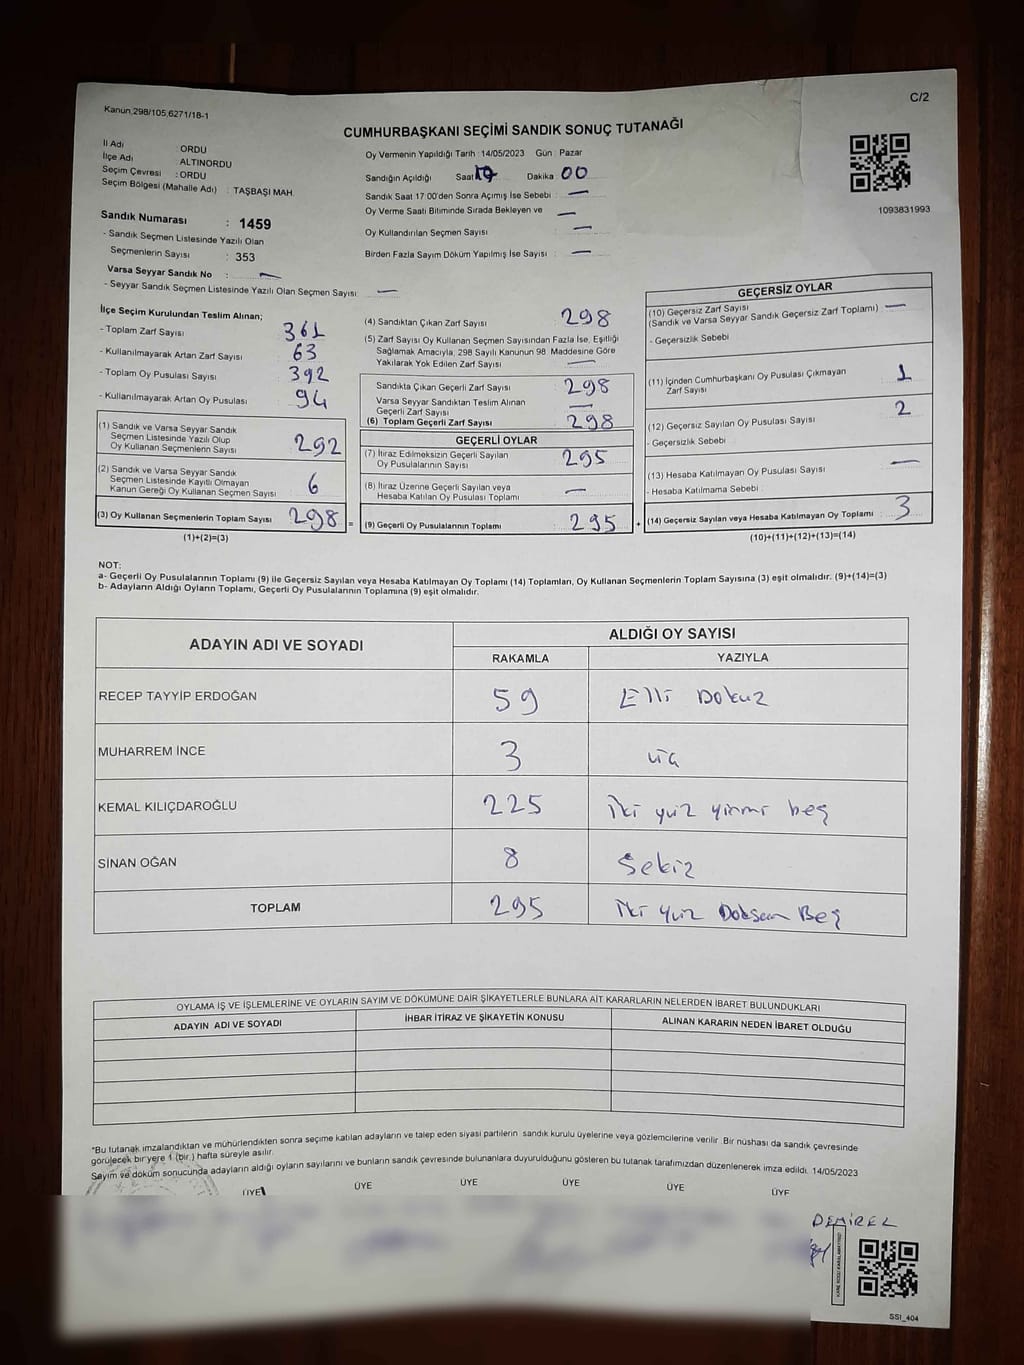 Kanun 298/105,6271/18-1
C/2
CUMHURBAŞKANI SEÇİMİ SANDIK SONUÇ TUTANAĞI
İl Adı : ORDU
İlçe Adı : ALTINORDU
Seçim Çevresi : ORDU
Seçim Bölgesi (Mahalle Adı) : TAŞBAŞI MAH
Sandık Numarası : 1459
- Sandık Seçmen Listesinde Yazılı Olan
Seçmenlerin Sayısı : 353
Varsa Seyyar Sandık No : —
- Seyyar Sandık Seçmen Listesinde Yazılı Olan Seçmen Sayısı: —
Oy Vermenin Yapıldığı Tarih : 14/05/2023 Gün : Pazar
Sandığın Açıldığı Saat Dakika 00
Sandık Saat 17 00'den Sonra Açımış İse Sebebi : —
Oy Verme Saati Bitiminde Sırada Bekleyen ve —
Oy Kullandırılan Seçmen Sayısı —
Birden Fazla Sayım Döküm Yapılmış İse Sayısı : —
1093831993
İlçe Seçim Kurulundan Teslim Alınan;
- Toplam Zarf Sayısı 361
- Kullanılmayarak Artan Zarf Sayısı 63
- Toplam Oy Pusulası Sayısı 392
- Kullanılmayarak Artan Oy Pusulası 94
(1) Sandık ve Varsa Seyyar Sandık
Seçmen Listesinde Yazılı Olup
Oy Kullanan Seçmenlerin Sayısı 292
(2) Sandık ve Varsa Seyyar Sandık
Seçmen Listesinde Kayıtlı Olmayan
Kanun Gereği Oy Kullanan Seçmen Sayısı 6
(3) Oy Kullanan Seçmenlerin Toplam Sayısı 298 =
(1)+(2)=(3)
(4) Sandıktan Çıkan Zarf Sayısı 298
(5) Zarf Sayısı Oy Kullanan Seçmen Sayısından Fazla İse, Eşitliği
Sağlamak Amacıyla, 298 Sayılı Kanunun 98 Maddesine Göre
Yakılarak Yok Edilen Zarf Sayısı —
Sandıkta Çıkan Geçerli Zarf Sayısı 298
Varsa Seyyar Sandıktan Teslim Alınan
Geçerli Zarf Sayısı —
(6) Toplam Geçerli Zarf Sayısı 298
GEÇERLİ OYLAR
(7) İtiraz Edilmeksizin Geçerli Sayılan
Oy Pusulalarının Sayısı 295
(8) İtiraz Üzerine Geçerli Sayılan veya
Hesaba Katılan Oy Pusulası Toplamı —
(9) Geçerli Oy Pusulalarının Toplamı 295 +
GEÇERSİZ OYLAR
(10) Geçersiz Zarf Sayısı
(Sandık ve Varsa Seyyar Sandık Geçersiz Zarf Toplamı) —
- Geçersizlik Sebebi
(11) İçinden Cumhurbaşkanı Oy Pusulası Çıkmayan
Zarf Sayısı 1
(12) Geçersiz Sayılan Oy Pusulası Sayısı 2
- Geçersizlik Sebebi
(13) Hesaba Katılmayan Oy Pusulası Sayısı —
- Hesaba Katılmama Sebebi
(14) Geçersiz Sayılan veya Hesaba Katılmayan Oy Toplamı 3
(10)+(11)+(12)+(13)=(14)
NOT:
a- Geçerli Oy Pusulalarının Toplamı (9) ile Geçersiz Sayılan veya Hesaba Katılmayan Oy Toplamı (14) Toplamları, Oy Kullanan Seçmenlerin Toplam Sayısına (3) eşit olmalıdır. (9)+(14)=(3)
b- Adayların Aldığı Oyların Toplamı, Geçerli Oy Pusulalarının Toplamına (9) eşit olmalıdır.
ADAYIN ADI VE SOYADI
ALDIĞI OY SAYISI
RAKAMLA YAZIYLA
RECEP TAYYİP ERDOĞAN 59 Elli Dokuz
MUHARREM İNCE 3 üç
KEMAL KILIÇDAROĞLU 225 iki yüz yirmi beş
SİNAN OĞAN 8 Sekiz
TOPLAM 295 iki yüz Doksan Beş
OYLAMA İŞ VE İŞLEMLERİNE VE OYLARIN SAYIM VE DÖKÜMÜNE DAİR ŞİKAYETLERLE BUNLARA AİT KARARLARIN NELERDEN İBARET BULUNDUKLARI
ADAYIN ADI VE SOYADI İHBAR İTİRAZ VE ŞİKAYETİN KONUSU ALINAN KARARIN NEDEN İBARET OLDUĞU
*Bu tutanak imzalandıktan ve mühürlendikten sonra seçime katılan adayların ve talep eden siyasi partilerin sandık kurulu üyelerine veya gözlemcilerine verilir. Bir nüshası da sandık çevresinde
görülecek bir yere 1 (bir) hafta süreyle asılır.
Sayım ve döküm sonucunda adayların aldığı oyların sayılarını ve bunların sandık çevresinde bulunanlara duyurulduğunu gösteren bu tutanak tarafımızdan düzenlenerek imza edildi. 14/05/2023
ÜYE ÜYE ÜYE ÜYE ÜYE ÜYE
DEMİREL
SSI_404